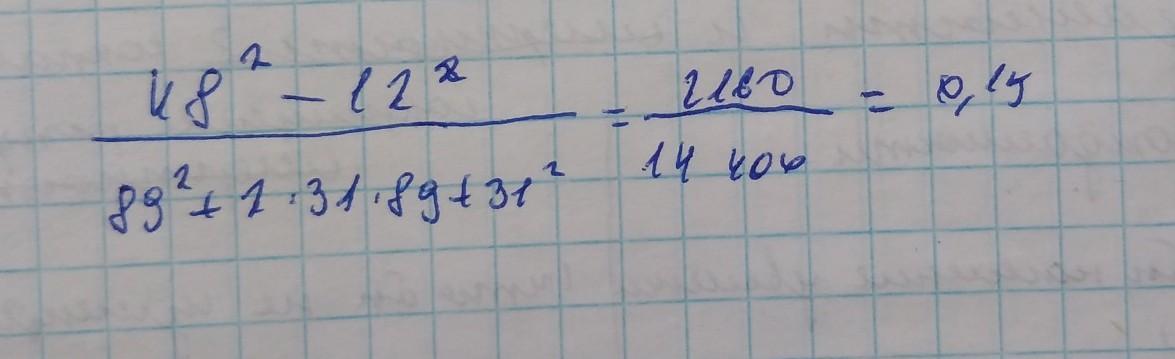 48² - 12² / 89² + 2·31·89 + 31² = 2160 / 14 400 = 0,15